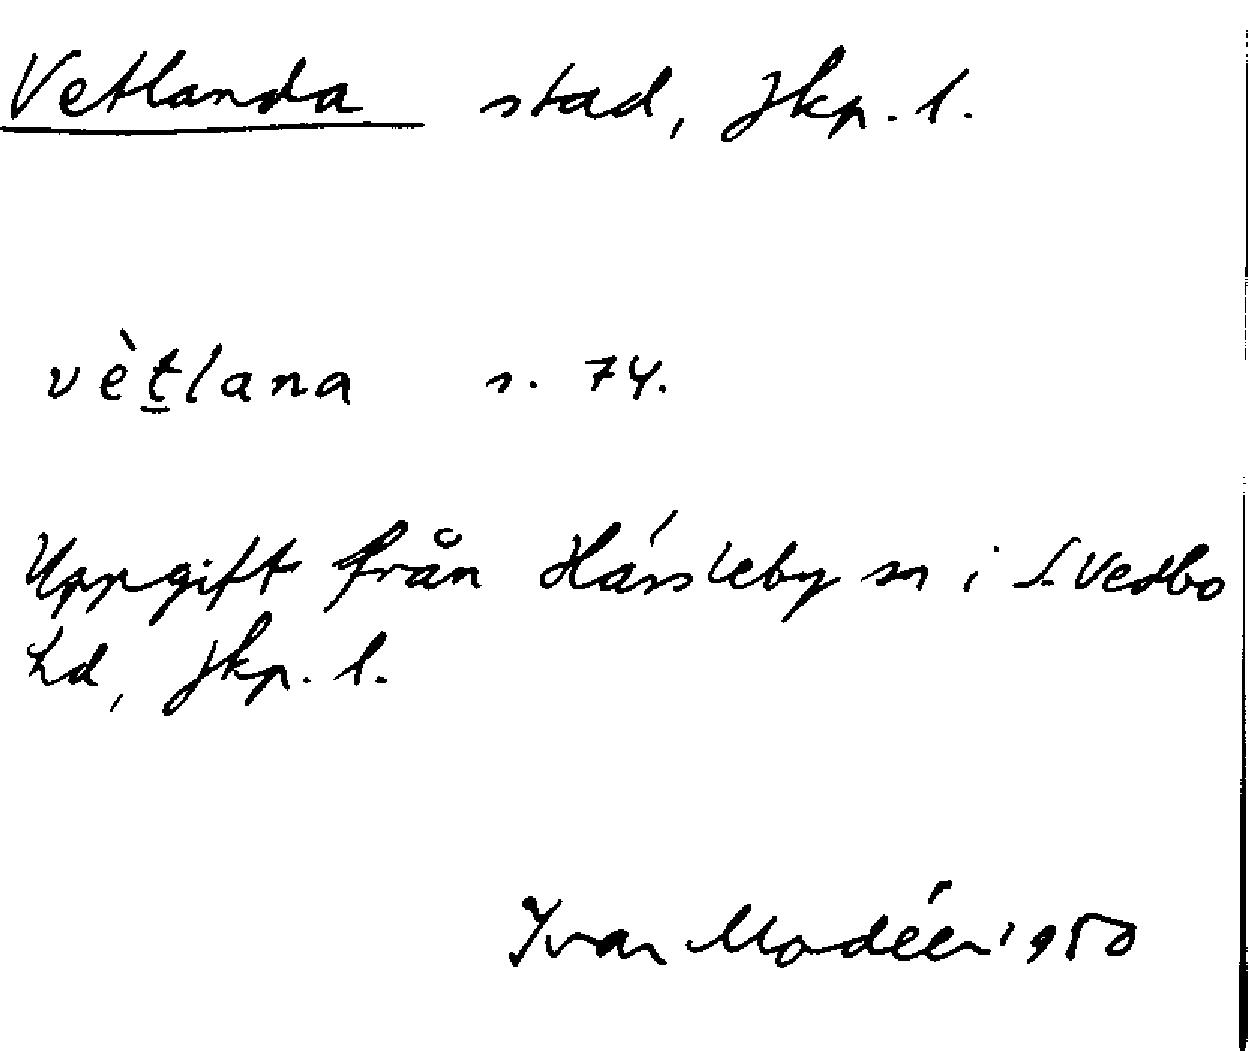 Vetlanda stad, Jkp. l.
vètlana s. 74.
Uppgift från Hässleby sn i S. Vedbo
hd, Jkp. l.
Ivar Modéer 1950